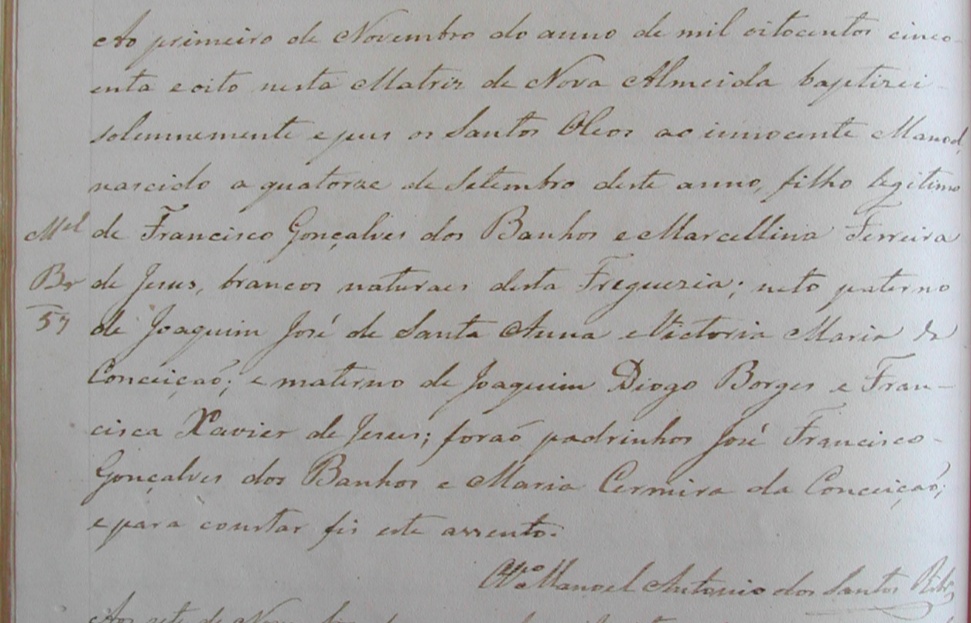 Ao primeiro de Novembro do anno de mil oitocentos cinco-
enta e oito nesta Matriz de Nova Almeida baptizei
solemnemente e pus os Santos Oleos ao innocente Manoel,
nascido a quatorze de Setembro deste anno, filho legitimo
Mel de Francisco Gonçalves dos Banhos e Marcellina Ferreira
Br de Jesus, brancos naturaes desta Freguezia; neto paterno
57 de Joaquim José de Santa Anna e Victoria Maria da
Conceiçaõ; e materno de Joaquim Diogo Borges e Fran-
cisca Xavier de Jesus; foraõ padrinhos José Francisco
Gonçalves dos Banhos e Maria Cermira da Conceiçaõ;
e para constar fis este assento.
Manoel Antonio dos Santos Ribr
Aos sete de